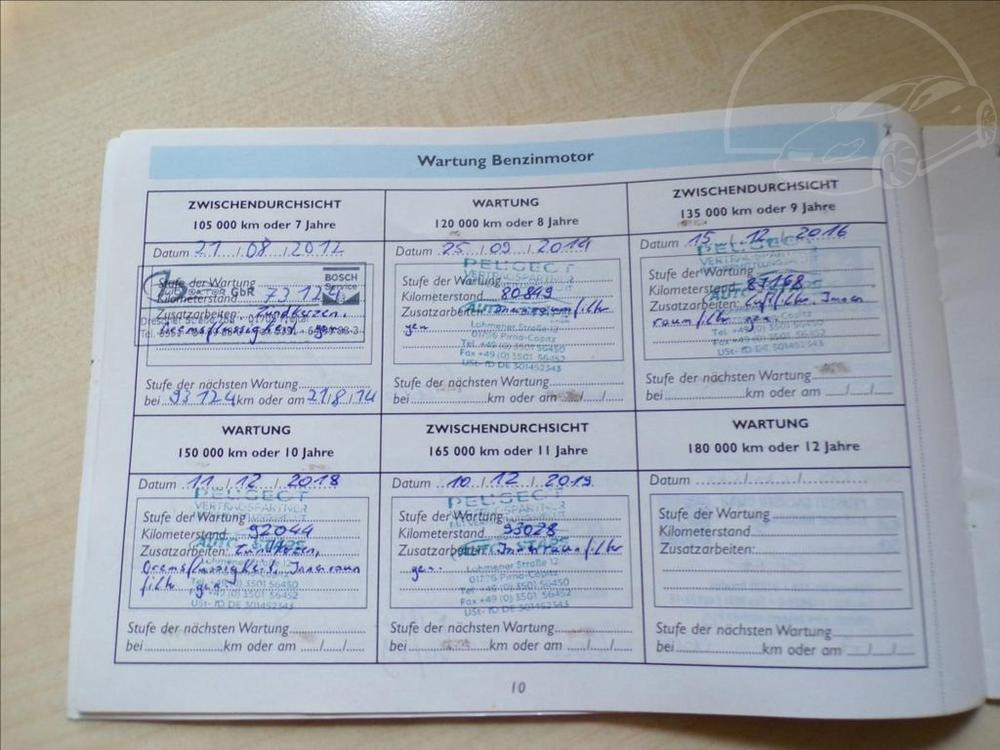 Wartung Benzinmotor
ZWISCHENDURCHSICHT
105 000 km oder 7 Jahre
Datum 21 / 08 / 2012
BOSCH
Service
GbR
Stufe der Wartung
Kilometerstand 73 124
Zusatzarbeiten: Zündkerzen,
Bremsflüssigkeit gew.
Stufe der nächsten Wartung
bei 93 124 km oder am 21/8/14
WARTUNG
120 000 km oder 8 Jahre
Datum 25 / 09 / 2014
PEUGEOT
VERTRAGSPARTNER
Stufe der Wartung
Kilometerstand 80849
Zusatzarbeiten: Innenraumfilter
gew.
Lohmener Straße 12
01796 Pirna-Copitz
Tel. +49 (0) 3501 56450
Fax +49 (0) 3501 56452
USt- ID DE 301452343
Stufe der nächsten Wartung
bei km oder am / /
ZWISCHENDURCHSICHT
135 000 km oder 9 Jahre
Datum 15 / 12 / 2016
PEUGEOT
VERTRAGSPARTNER
Stufe der Wartung
Kilometerstand 87168
Zusatzarbeiten: Luftfilter, Innen
raumfilter gew.
Stufe der nächsten Wartung
bei km oder am / /
WARTUNG
150 000 km oder 10 Jahre
Datum 11 / 12 / 2018
PEUGEOT
VERTRAGSPARTNER
Stufe der Wartung
Kilometerstand 92044
Zusatzarbeiten: Zündkerzen,
Bremsflüssigkeit, Innenraum
filter gew.
Tel. +49 (0) 3501 56450
Fax +49 (0) 3501 56452
USt- ID DE 301452343
Stufe der nächsten Wartung
bei km oder am / /
ZWISCHENDURCHSICHT
165 000 km oder 11 Jahre
Datum 10 / 12 / 2019
PEUGEOT
VERTRAGSPARTNER
Stufe der Wartung
Kilometerstand 93028
Zusatzarbeiten: Innenraumfilter
gew.
Lohmener Straße 12
01796 Pirna-Copitz
Tel. +49 (0) 3501 56450
Fax +49 (0) 3501 56452
USt- ID DE 301452343
Stufe der nächsten Wartung
bei km oder am / /
WARTUNG
180 000 km oder 12 Jahre
Datum / /
Stufe der Wartung
Kilometerstand
Zusatzarbeiten:
Stufe der nächsten Wartung
bei km oder am / /
10